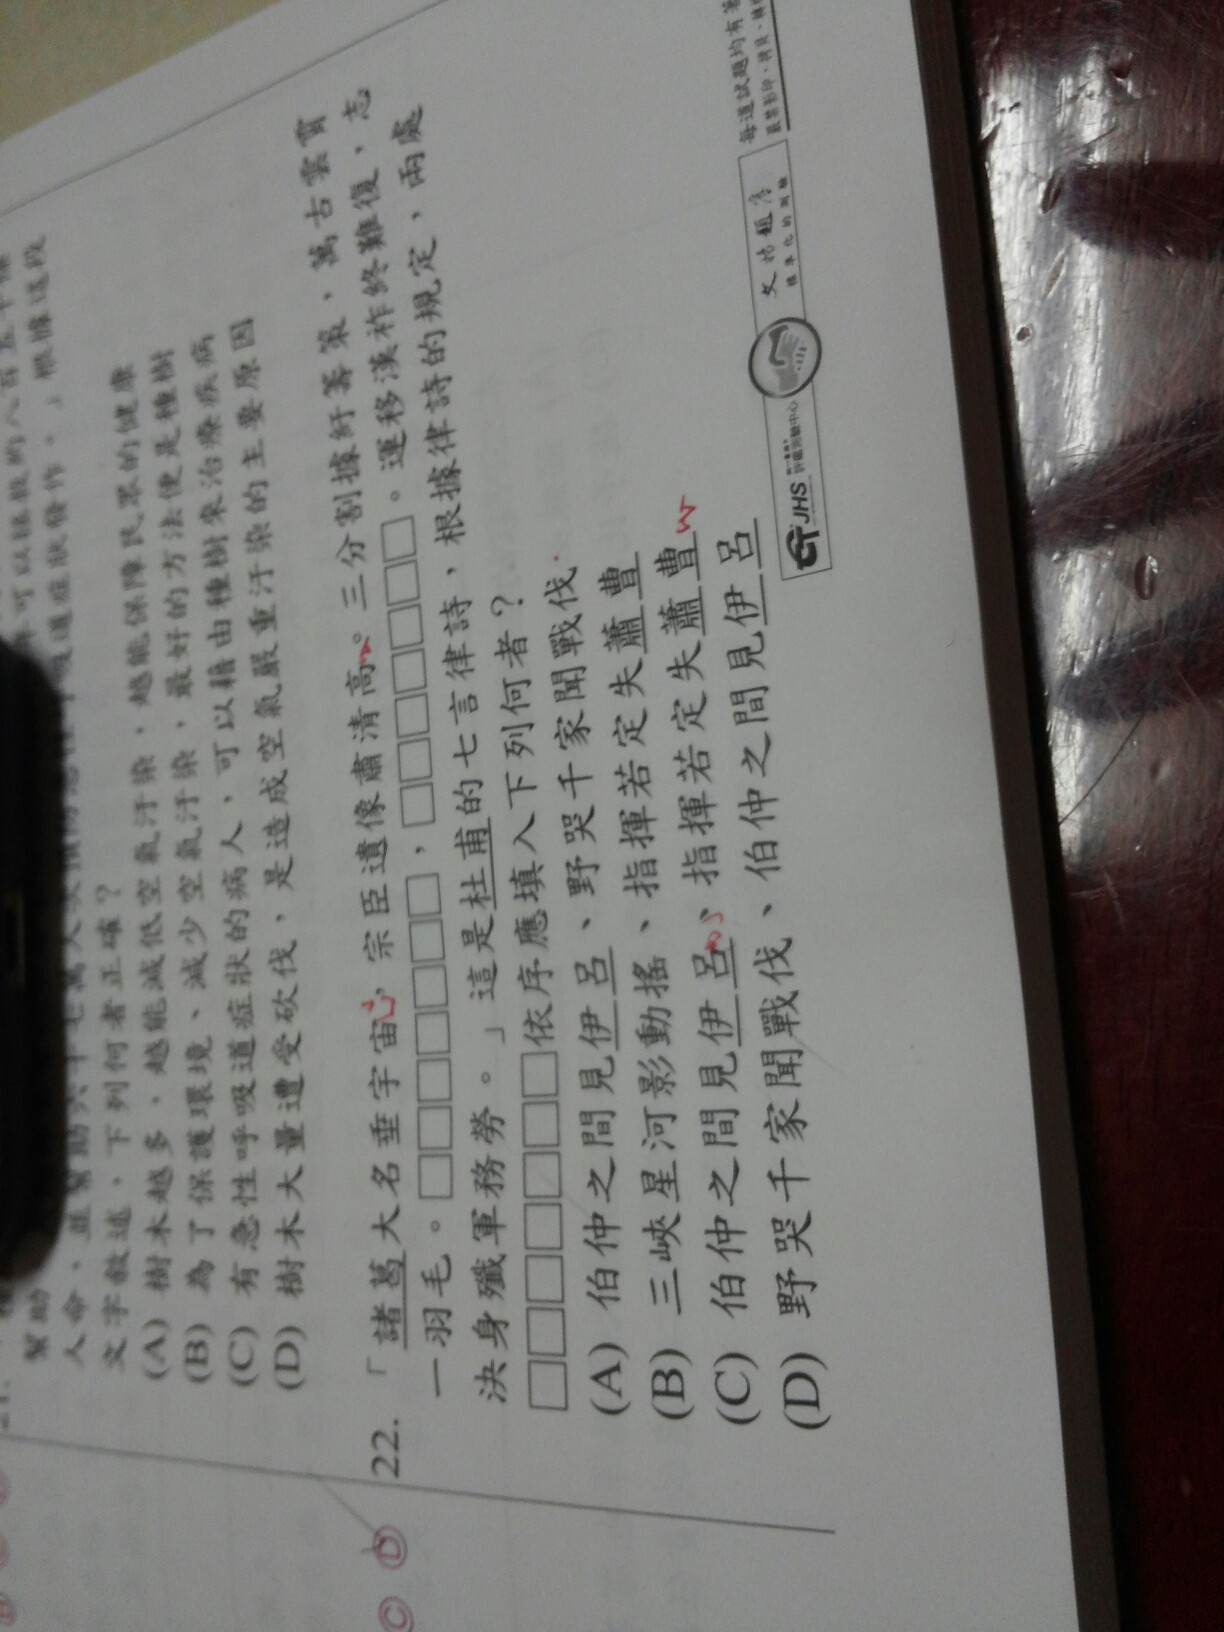 幫助
人命，並幫助六十七萬人次預防急性呼吸道症狀發作。」根據這段
文字敘述，下列何者正確？
(A) 樹木越多，越能減低空氣汙染，越能保障民眾的健康
(B) 為了保護環境、減少空氣汙染，最好的方法便是種樹
(C) 有急性呼吸道症狀的病人，可以藉由種樹來治療疾病
(D) 樹木大量遭受砍伐，是造成空氣嚴重汙染的主要原因
22. 「諸葛大名垂宇宙，宗臣遺像肅清高。三分割據紆籌策，萬古雲霄
一羽毛。□□□□□□□，□□□□□□□。運移漢祚終難復，志
決身殲軍務勞。」這是杜甫的七言律詩，根據律詩的規定，兩處
□□□□□□□依序應填入下列何者？
(A) 伯仲之間見伊呂、野哭千家聞戰伐
(B) 三峽星河影動搖、指揮若定失蕭曹
(C) 伯仲之間見伊呂、指揮若定失蕭曹
(D) 野哭千家聞戰伐、伯仲之間見伊呂
C D
JHS 評鑑測驗中心
文揚題庫
標準化的測驗
每道試題均有著